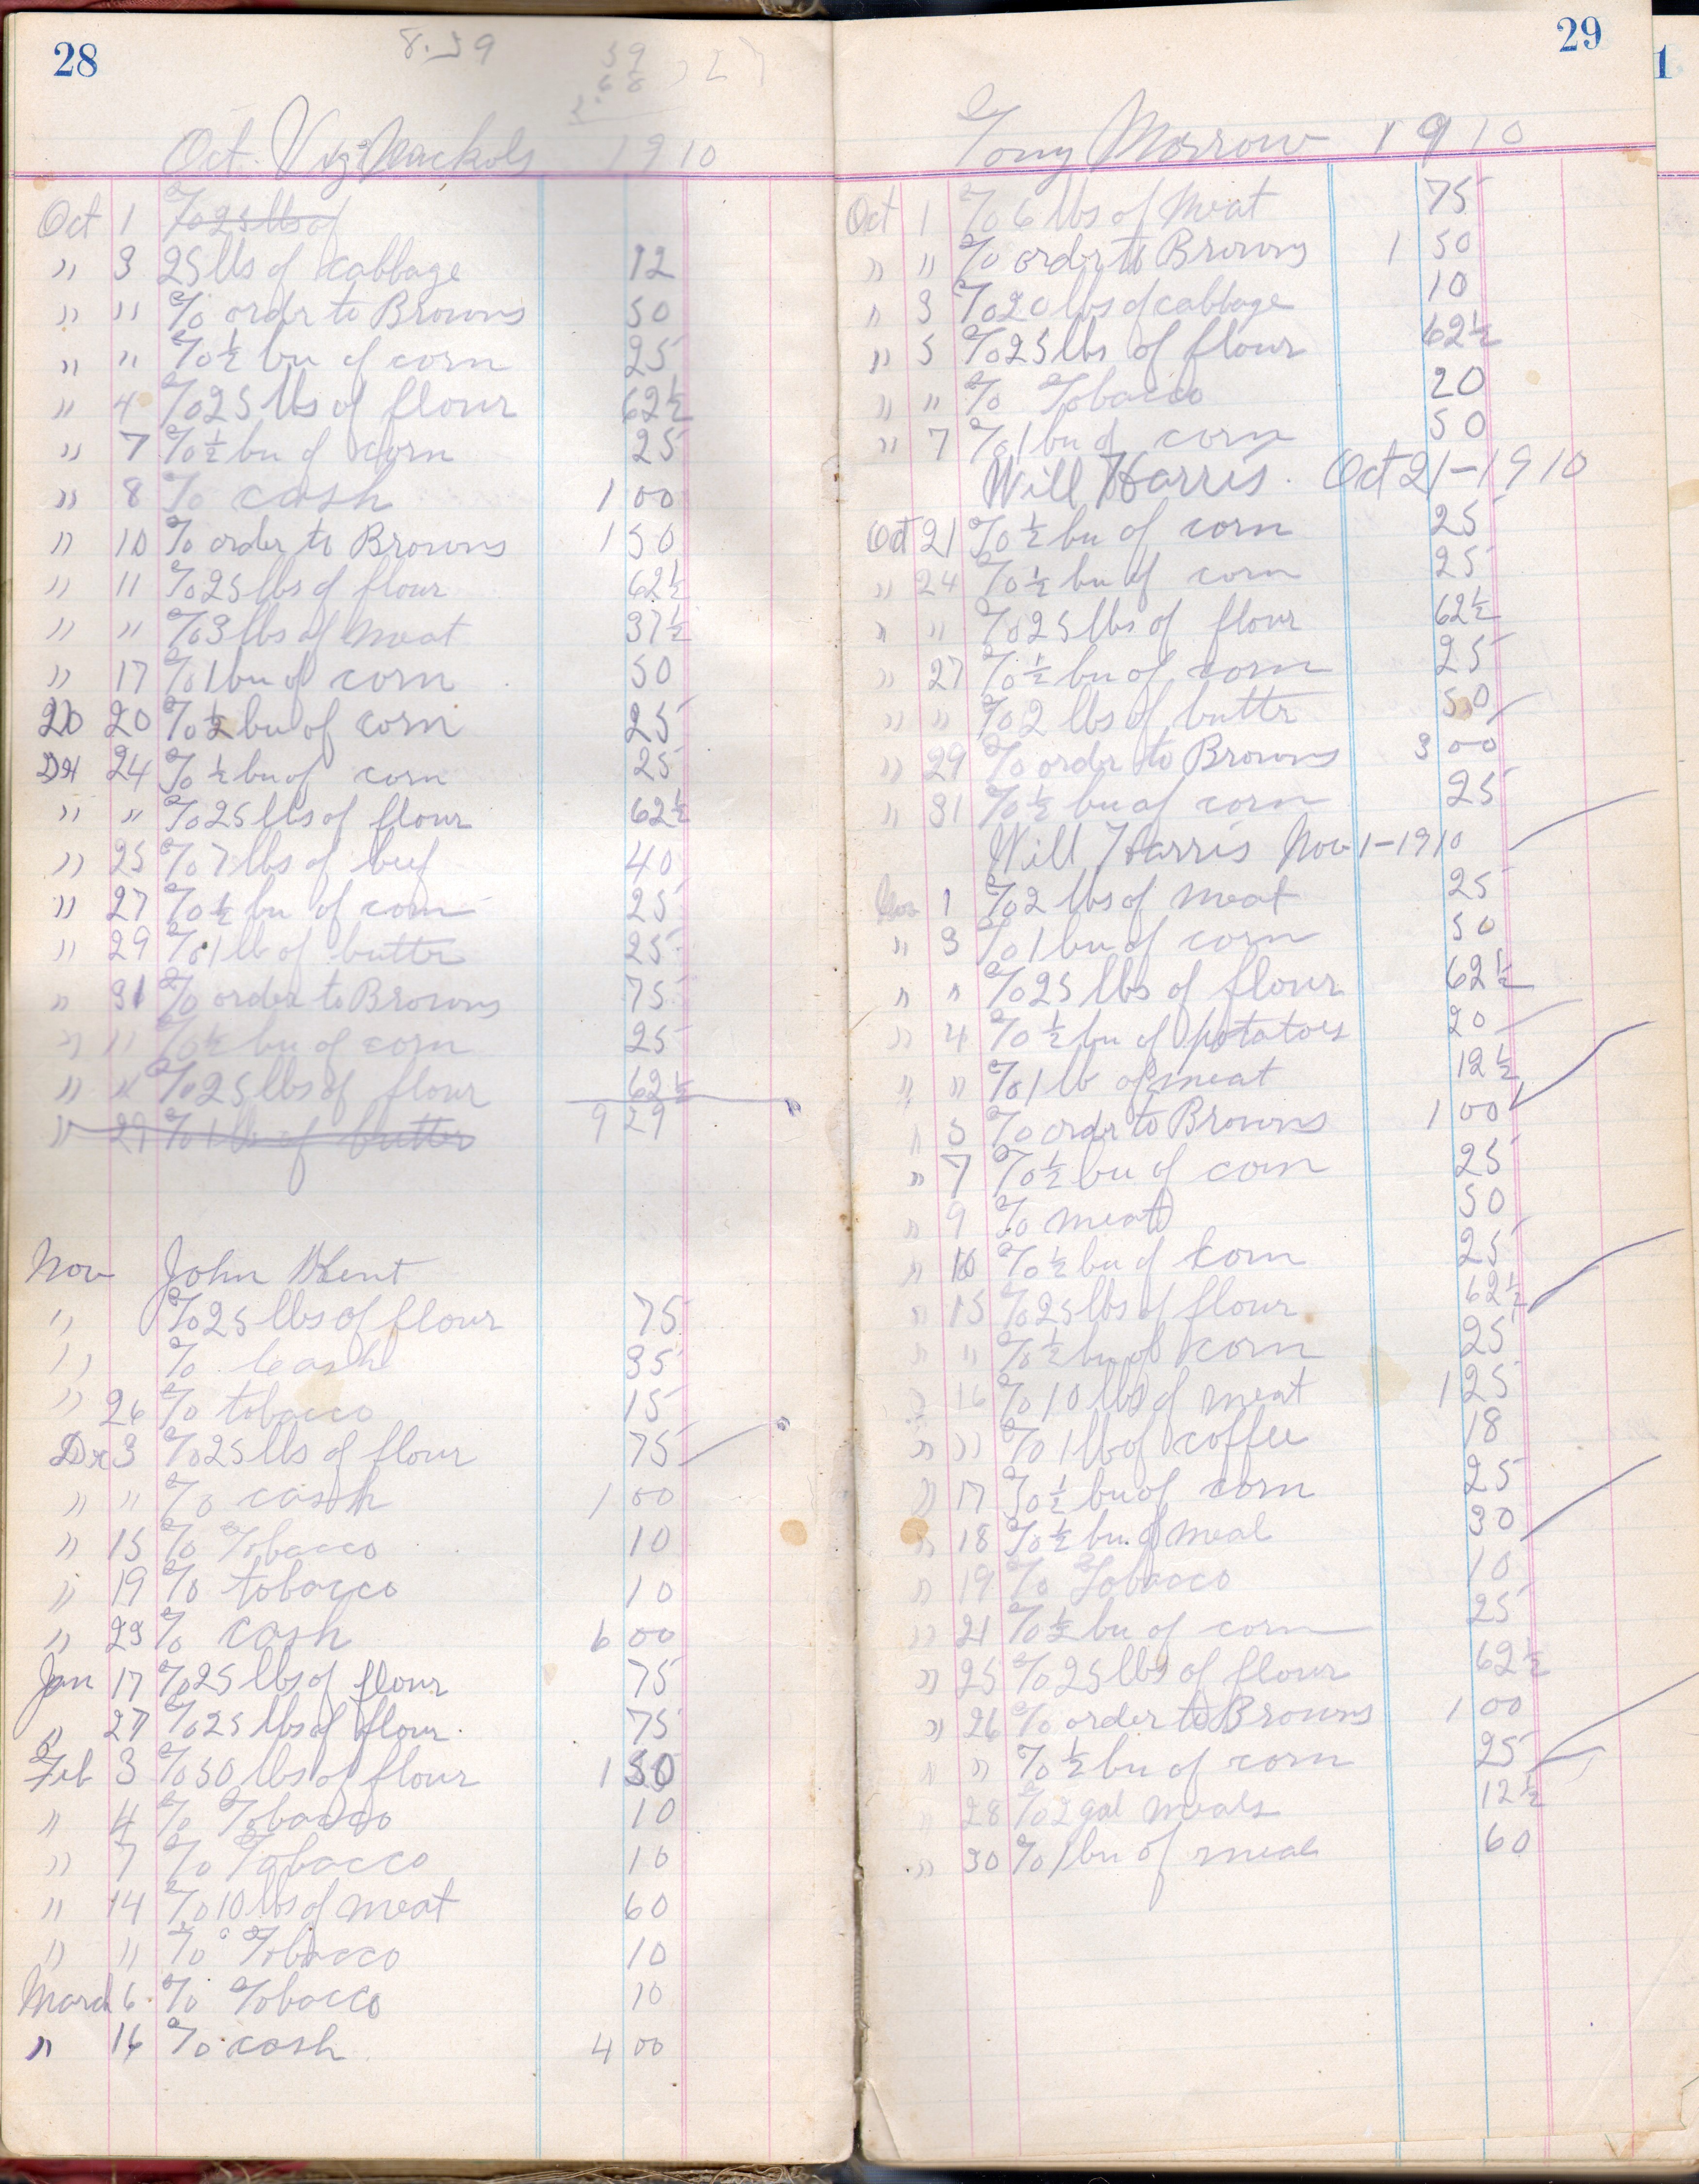 28
8.59
59
68
Oct. Virg Nuckols 1910
Oct 1 To 25 lbs of
" 3 25 lbs of cabbage 12
" " To order to Browns 50
" " To ½ bu of corn 25
" 4 To 25 lbs of flour 62½
" 7 To ½ bu of corn 25
" 8 To cash 1 00
" 10 To order to Browns 1 50
" 11 To 25 lbs of flour 62½
" " To 3 lbs of meat 37½
" 17 To 1 bu of corn 50
20 To ½ bu of corn 25
24 To ½ bu of corn 25
" " To 25 lbs of flour 62½
" 25 To 7 lbs of beef 40
" 27 To ½ bu of corn 25
" 29 To 1 lb of butter 25
" 31 To order to Browns 75
" " To ½ bu of corn 25
" " To 25 lbs of flour 62½
" 29 To 1 lb of butter 9 29
Nov John Kent
" To 25 lbs of flour 75
" To Cash 35
" 26 To tobacco 15
Dec 3 To 25 lbs of flour 75
" " To cash 1 00
" 15 To Tobacco 10
" 19 To tobacco 10
" 23 To cash 6 00
Jan 17 To 25 lbs of flour 75
" 27 To 25 lbs of flour 75
Feb 3 To 50 lbs of flour 1 50
" 4 To Tobacco 10
" 7 To Tobacco 10
" 14 To 10 lbs of meat 60
" " To Tobacco 10
March 6 To Tobacco 10
" 16 To cash 4 00
29
Tony Morrow 1910
Oct 1 To 6 lbs of Meat 75
" " To order to Browns 1 50
" 3 To 20 lbs of cabbage 10
" 5 To 25 lbs of flour 62½
" " To Tobacco 20
" 7 To 1 bu of corn 50
Will Harris. Oct 21-1910
Oct 21 To ½ bu of corn 25
" 24 To ½ bu of corn 25
" " To 25 lbs of flour 62½
" 27 To ½ bu of corn 25
" " To 2 lbs of butter 50
" 29 To order to Browns 3 00
" 31 To ½ bu of corn 25
Will Harris Nov 1-1910
Nov 1 To 2 lbs of meat 25
" 3 To 1 bu of corn 50
" " To 25 lbs of flour 62½
" 4 To ½ bu of potatoes 20
" " To 1 lb of meat 12½
" 5 To order to Browns 1 00
" 7 To ½ bu of corn 25
" 9 To meat 50
" 10 To ½ bu of corn 25
" 15 To 25 lbs of flour 62½
" " To ½ bu of corn 25
" 16 To 10 lbs of meat 1 25
" " To 1 lb of coffee 18
" 17 To ½ bu of corn 25
" 18 To ½ bu of meal 30
" 19 To Tobacco 10
" 21 To ½ bu of corn 25
" 25 To 25 lbs of flour 62½
" 26 To order to Browns 1 00
" " To ½ bu of corn 25
" 28 To 2 gal meals 12½
" 30 To 1 bu of meal 60